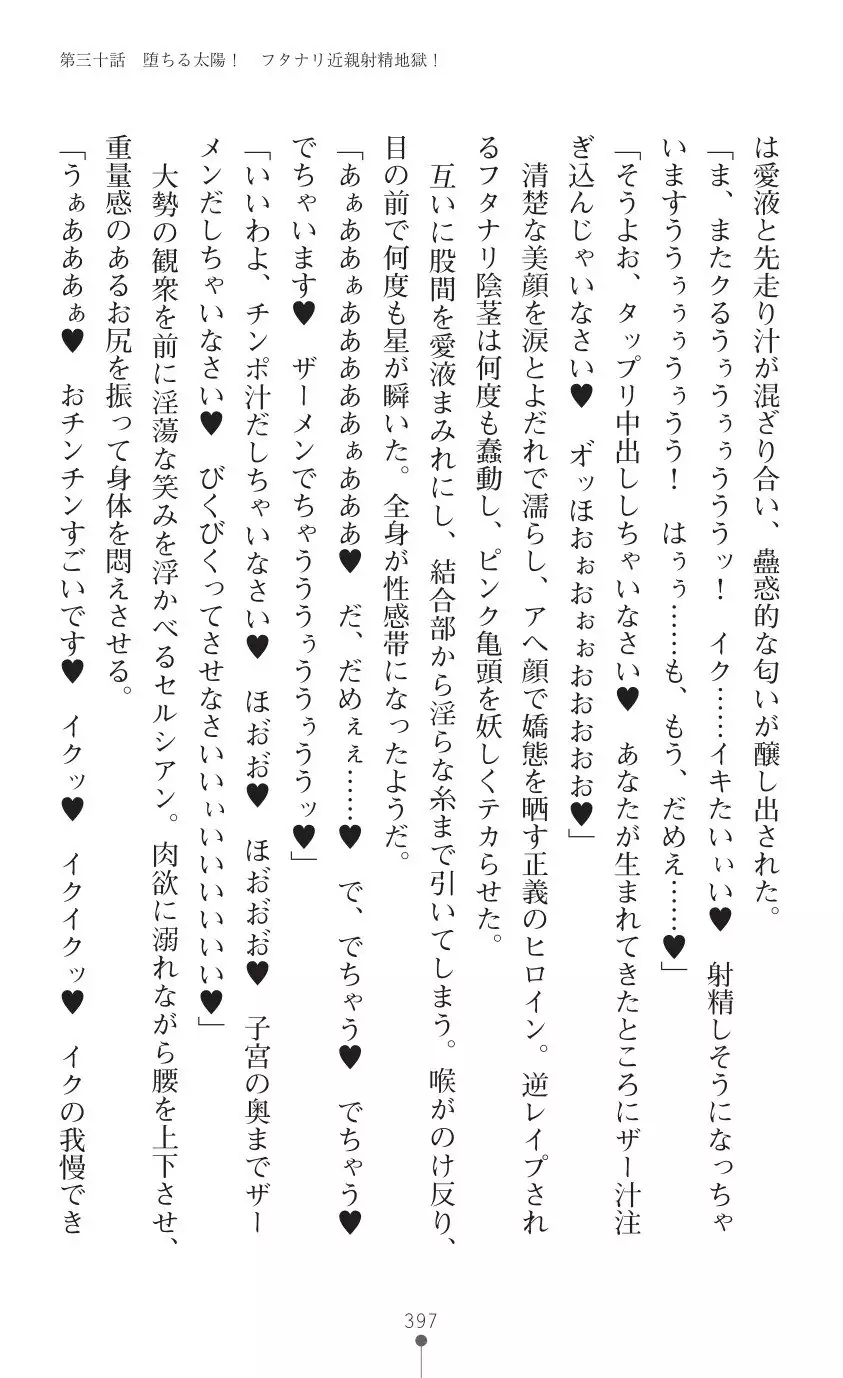 第三十話　堕ちる太陽！　フタナリ近親射精地獄！
は愛液と先走り汁が混ざり合い、蠱惑的な匂いが醸し出された。
「ま、またクるうぅうぅぅううッ！　イク……イキたいぃい♥　射精しそうになっちゃ
いますううぅぅぅうぅうう！　はぅぅ……も、もう、だめえ……♥」
「そうよお、タップリ中出ししちゃいなさい♥　あなたが生まれてきたところにザー汁注
ぎ込んじゃいなさい♥　オ゛ッほおぉおぉぉおおおおお♥」
　清楚な美顔を涙とよだれで濡らし、アヘ顔で嬌態を晒す正義のヒロイン。逆レイプされ
るフタナリ陰茎は何度も蠢動し、ピンク亀頭を妖しくテカらせた。
　互いに股間を愛液まみれにし、結合部から淫らな糸まで引いてしまう。喉がのけ反り、
目の前で何度も星が瞬いた。全身が性感帯になったようだ。
「あぁああぁああああああぁあああ♥　だ、だめぇぇ……♥　で、でちゃう♥　でちゃう♥
でちゃいます♥　ザーメンでちゃうううぅううぅううッ♥」
「いいわよ、チンポ汁だしちゃいなさい♥　ほお゛お゛♥　ほお゛お゛お゛♥　子宮の奥までザー
メンだしちゃいなさい♥　びくびくってさせなさいいぃいいいいいい♥」
　大勢の観衆を前に淫蕩な笑みを浮かべるセルシアン。肉欲に溺れながら腰を上下させ、
重量感のあるお尻を振って身体を悶えさせる。
「うぁあああぁ♥　おチンチンすごいです♥　イクッ♥　イクイクッ♥　イクの我慢でき
397